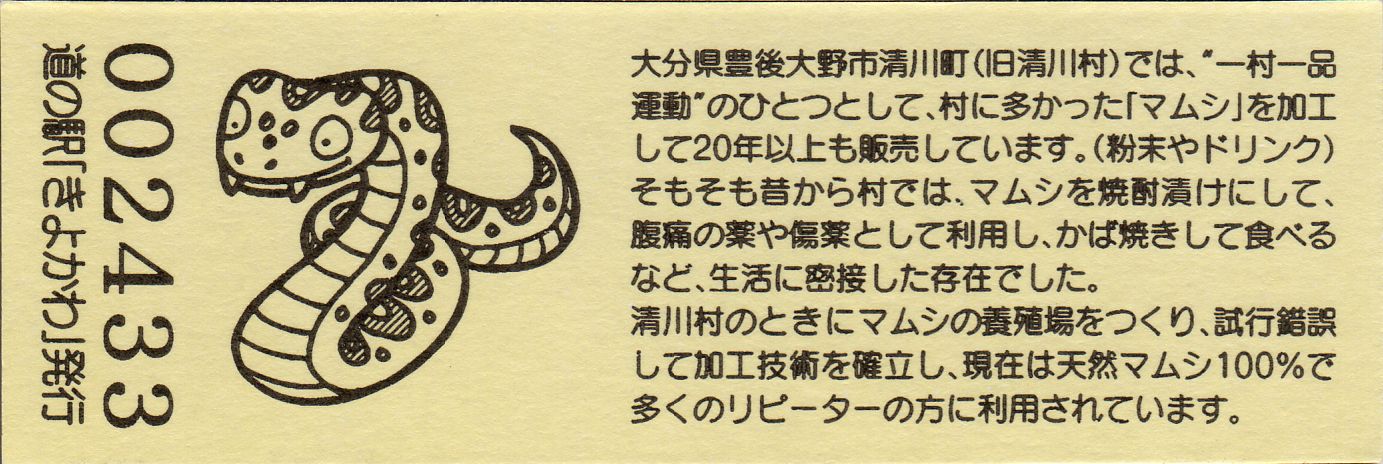 大分県豊後大野市清川町(旧清川村)では、“一村一品
運動”のひとつとして、村に多かった「マムシ」を加工
して20年以上も販売しています。(粉末やドリンク)
そもそも昔から村では、マムシを焼酎漬けにして、
腹痛の薬や傷薬として利用し、かば焼きして食べる
など、生活に密接した存在でした。
清川村のときにマムシの養殖場をつくり、試行錯誤
して加工技術を確立し、現在は天然マムシ100%で
多くのリピーターの方に利用されています。
002433
道の駅「きよかわ」発行